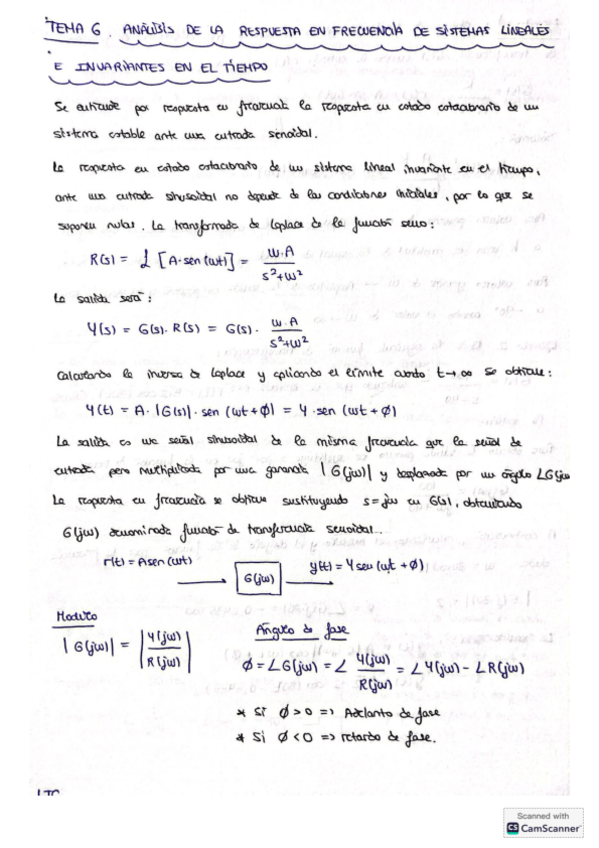 TEMA 6. ANÁLISIS DE LA RESPUESTA EN FRECUENCIA DE SISTEMAS LINEALES
E INVARIANTES EN EL TIEMPO
Se entiende por respuesta en frecuencia la respuesta en estado estacionario de un
sistema estable ante una entrada senoidal.
La respuesta en estado estacionario de un sistema lineal invariante en el tiempo,
ante una entrada sinusoidal no depende de las condiciones iniciales, por lo que se
suponen nulas. La transformada de Laplace de la función seno:
R(s) = L [A·sen(wt)] = w·A / s²+w²
La salida será:
Y(s) = G(s)·R(s) = G(s)· w·A / s²+w²
Calculando la inversa de Laplace y aplicando el límite cuando t→∞ se obtiene:
Y(t) = A·|G(s)|·sen(wt+ϕ) = Y·sen(wt+ϕ)
La salida es una señal sinusoidal de la misma frecuencia que la señal de
entrada pero multiplicada por una ganancia |G(jw)| y desplazada por un ángulo ∠G(jw)
La respuesta en frecuencia se obtiene sustituyendo s=jw en G(s), obteniendo
G(jw) denominada función de transferencia senoidal.
r(t) = A sen(wt) G(jw) y(t) = Y sen(wt+ϕ)
Modulo Ángulo de fase
|G(jw)| = |Y(jw) / R(jw)| ϕ = ∠G(jw) = ∠ Y(jw) / R(jw) = ∠Y(jw) - ∠R(jw)
* Si ϕ>0 => Adelanto de fase
* Si ϕ<0 => retardo de fase.
Scanned with
CS CamScanner